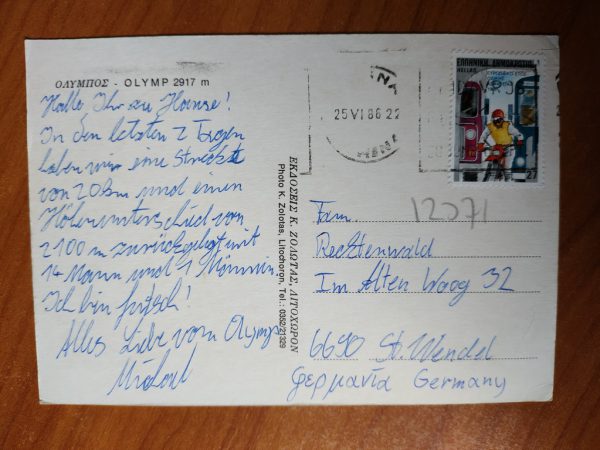 ΟΛΥΜΠΟΣ - OLYMP 2917 m
Hallo Ihr zu Hause!
In den letzten 2 Tagen
haben wir eine Strecke
von 20 km und einen
Höhenunterschied von
2100 m zurückgelegt mit
14 Mann und 1 Männin.
Ich bin
Alles Liebe vom Olymp
Michael
ΕΚΔΟΣΕΙΣ Κ. ΖΟΛΩΤΑΣ, ΛΙΤΟΧΩΡΟΝ
Photo K. Zolotas, Litochoron, Tel.: 0352/21329
25 VI 86 22
ΕΛΛΗΝΙΚΗ ΔΗΜΟΚΡΑΤΙΑ
HELLAS
27
12071
Fam.
Rechtenwald
Im Alten Woog 32
6690 St. Wendel
φερμανία Germany